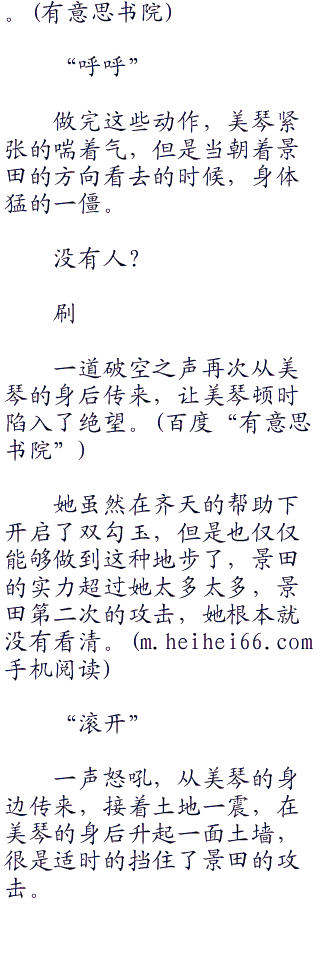 。(有意思书院)
“呼呼”
做完这些动作，美琴紧
张的喘着气，但是当朝着景
田的方向看去的时候，身体
猛的一僵。
没有人？
刷
一道破空之声再次从美
琴的身后传来，让美琴顿时
陷入了绝望。(百度“有意思
书院”)
她虽然在齐天的帮助下
开启了双勾玉，但是也仅仅
能够做到这种地步了，景田
的实力超过她太多太多，景
田第二次的攻击，她根本就
没有看清。(m.heihei66.com
手机阅读)
“滚开”
一声怒吼，从美琴的身
边传来，接着土地一震，在
美琴的身后升起一面土墙，
很是适时的挡住了景田的攻
击。